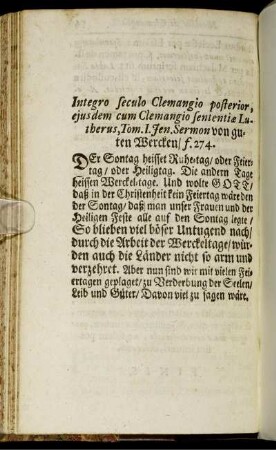 Integro seculo Clemangio posterior,
ejusdem cum Clemangio sententiæ Lu-
therus, Tom. I. Jen. Sermon von gu-
ten Wercken/ f. 274.
DEr Sontag heisset Ruhetag/ oder Feier-
tag/ oder Heiligtag. Die andern Tage
heissen Werckeltage. Und wolte GOTT/
daß in der Christenheit kein Feiertag wäre den
der Sontag/ daß man unser Frauen und der
Heiligen Feste alle auf den Sontag legte/
So blieben viel böser Untugend nach/
durch die Arbeit der Werckeltage/ wür-
den auch die Länder nicht so arm und
verzehret. Aber nun sind wir mit vielen Fei-
ertagen geplaget/ zu Verderbung der Seelen/
Leib und Güter/ Davon viel zu sagen wäre.